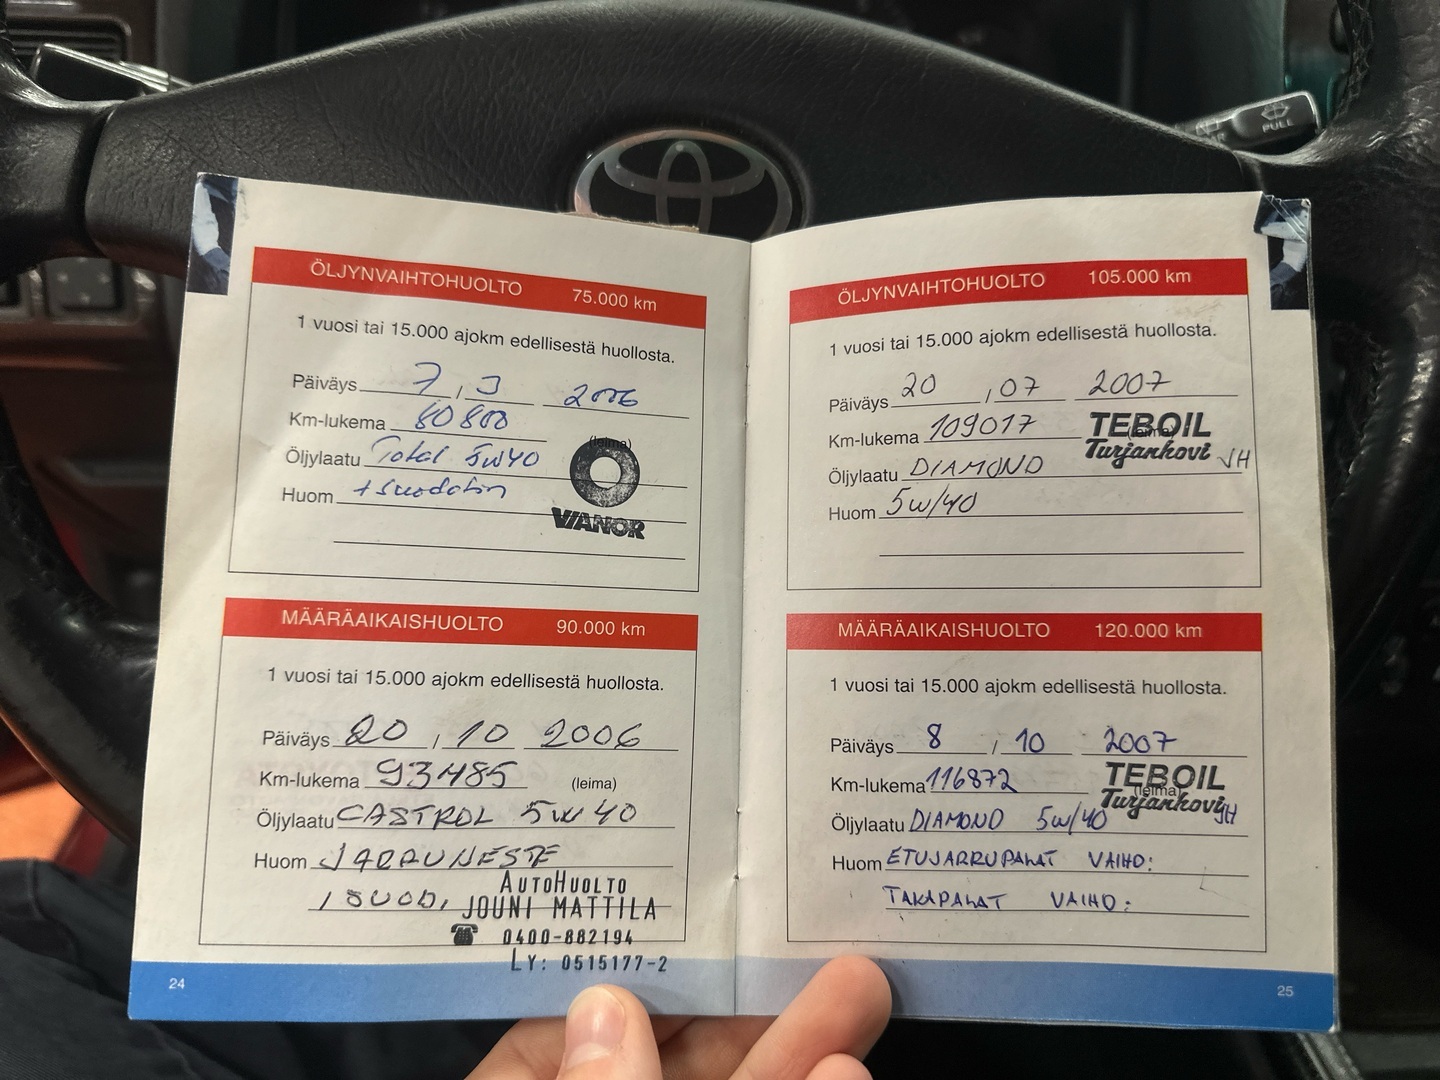 PULL
ÖLJYNVAIHTOHUOLTO 75.000 km
1 vuosi tai 15.000 ajokm edellisestä huollosta.
Päiväys 7 , 3 2006
Km-lukema 80800
(leima)
Öljylaatu Total 5W40
Huom + Suodatin
VIANOR
MÄÄRÄAIKAISHUOLTO 90.000 km
1 vuosi tai 15.000 ajokm edellisestä huollosta.
Päiväys 20 , 10 2006
Km-lukema 93485 (leima)
Öljylaatu CASTROL 5W40
Huom JARRUNESTE
, SUOD,
AUTOHUOLTO
JOUNI MATTILA
0400-882194
LY: 0515177-2
24
ÖLJYNVAIHTOHUOLTO 105.000 km
1 vuosi tai 15.000 ajokm edellisestä huollosta.
Päiväys 20 , 07 2007
Km-lukema 109017
TEBOIL
(leima)
Turjankovi JH
Öljylaatu DIAMOND
Huom 5W/40
MÄÄRÄAIKAISHUOLTO 120.000 km
1 vuosi tai 15.000 ajokm edellisestä huollosta.
Päiväys 8 , 10 2007
Km-lukema 116872
TEBOIL
(leima)
Turjankovi JH
Öljylaatu DIAMOND 5W/40
Huom ETUJARRUPALAT VAIHD:
TAKAPALAT VAIHD:
25